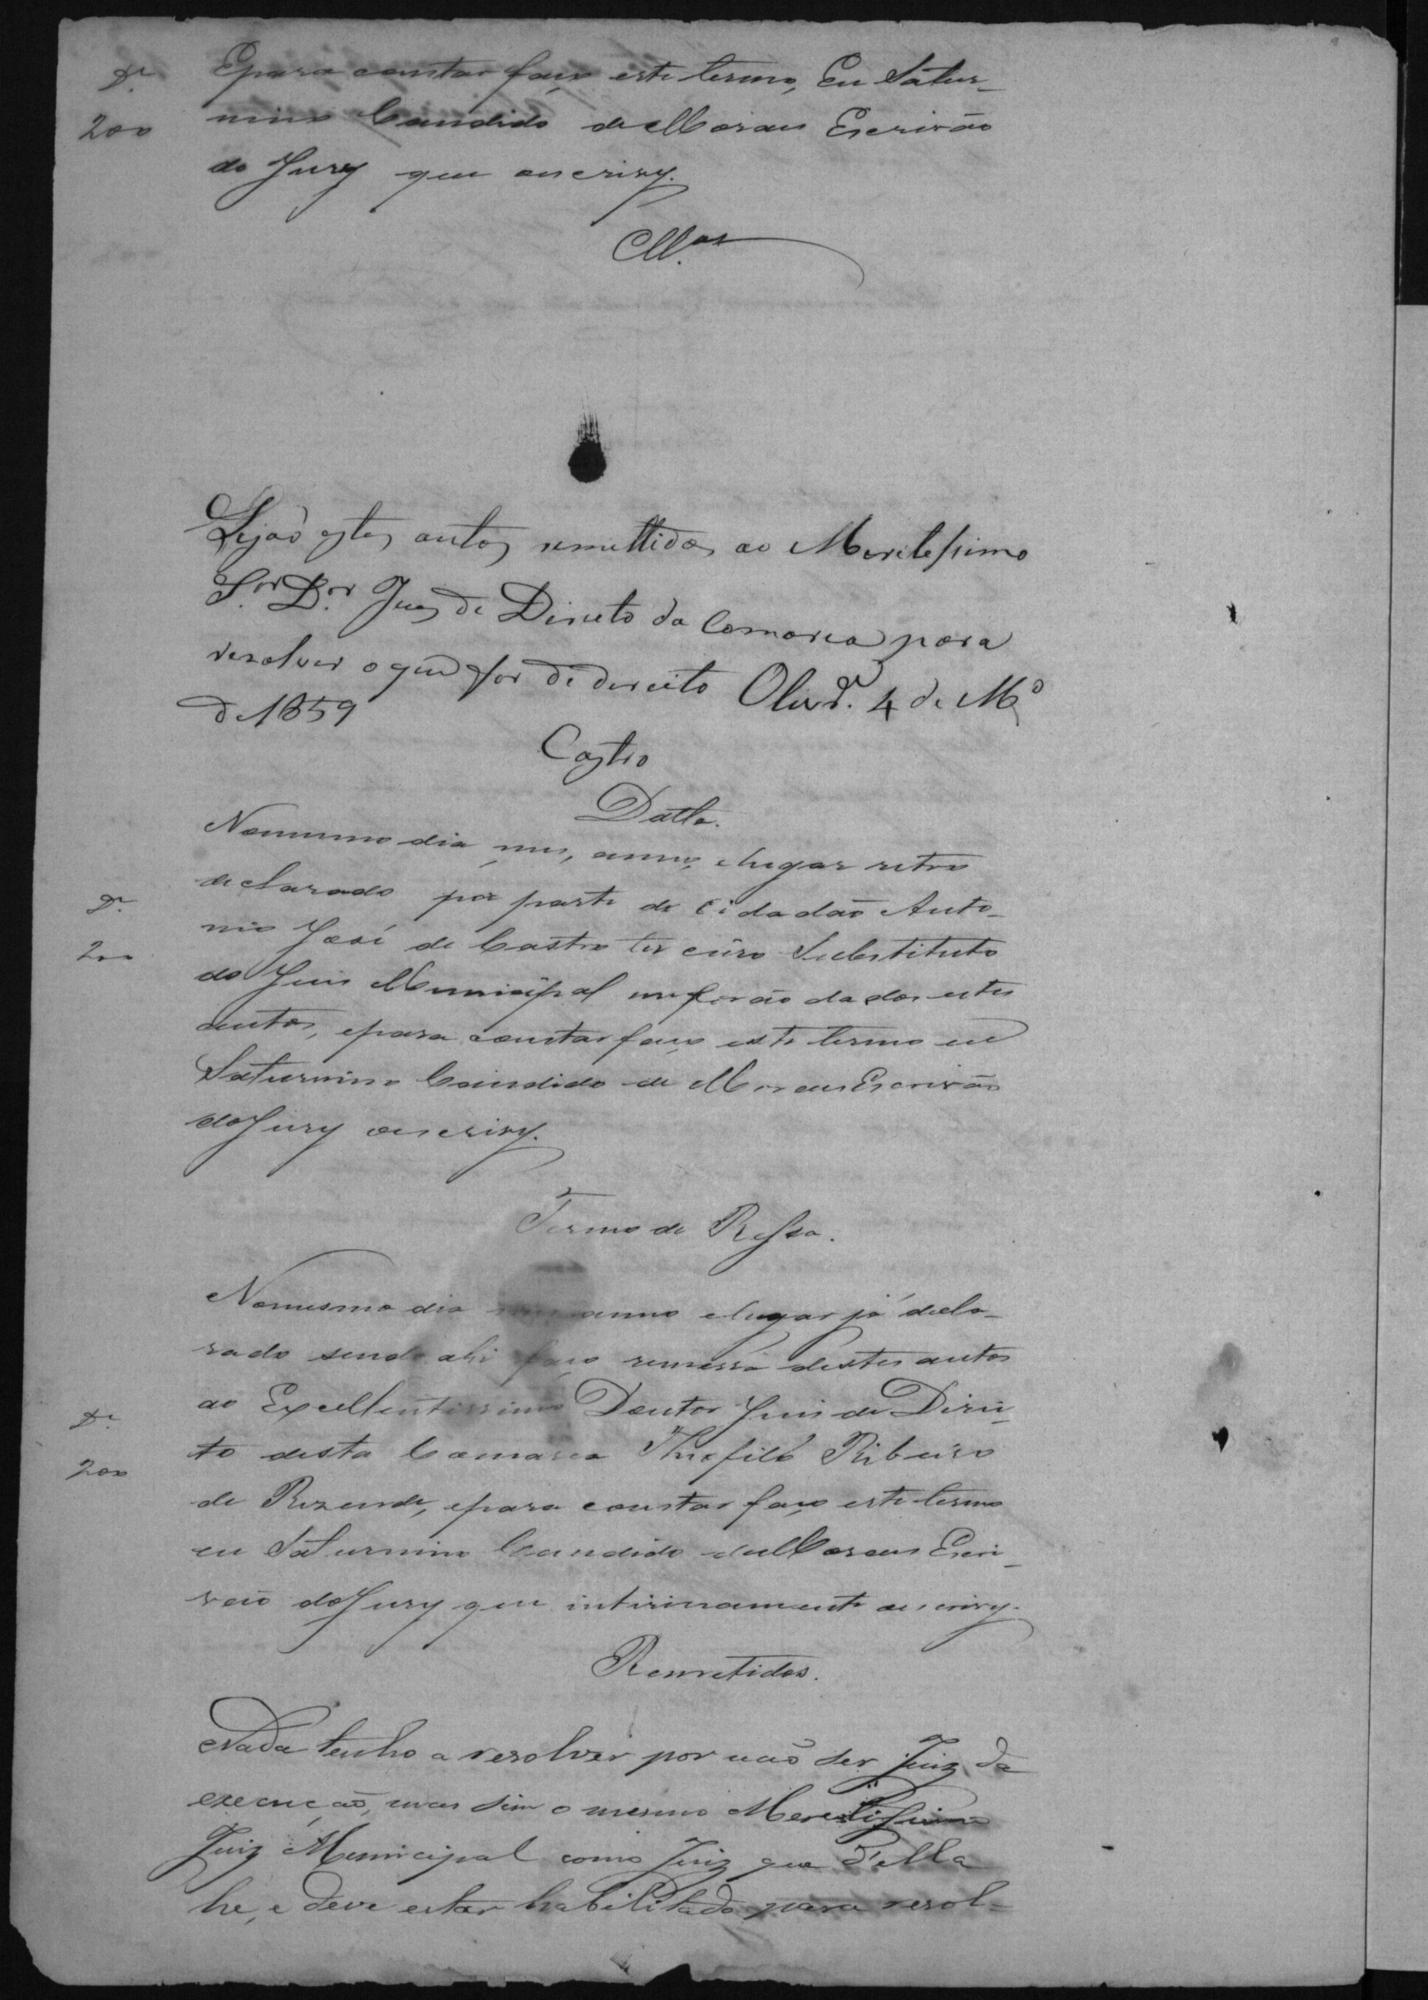 Dr. Epara constar faço este termo, Eu Satur-
200 nino Candido de Moraes Escrivão
do Jury que escrivy.
M.es
Sejaõ estes autos remettidos ao Meretessimo
S.or D.or Juis de Direito da Comarca para
resolver o que for de direito Oliv.ra 4 de M.ço
de 1859
Castro
Datta.
Nomesmo dia mes, anno, elugar retro
declarado por parte do Cidadaõ Anto-
Dr. nio José de Castro terceiro Substituto
200 do Juis Municipal me foraõ dados estes
autos, epara constar faço este termo eu
Saturnino Candido de Moraes Escrivão
do Jury escrivy.
Termo de Refsa.
Nomesmo dia mes anno elugar já decla-
rado sendo ahi faço remessa destes autos
ao Excellentissimo Doutor Juis de Direi-
Dr. to desta Comarca Theofilo Ribeiro
200 de Rezende, epara constar faço este termo
eu Saturnino Candido de Moraes Escri-
vaõ do Jury que intirinamente escrivy.
Remetidos.
Nada tenho a resolver por naõ ser Juiz da
execuçaõ, mas sim o mesmo Meretissimo
Juiz Municipal como Juiz que d'ella
he, e deve estar habilitado para resol-